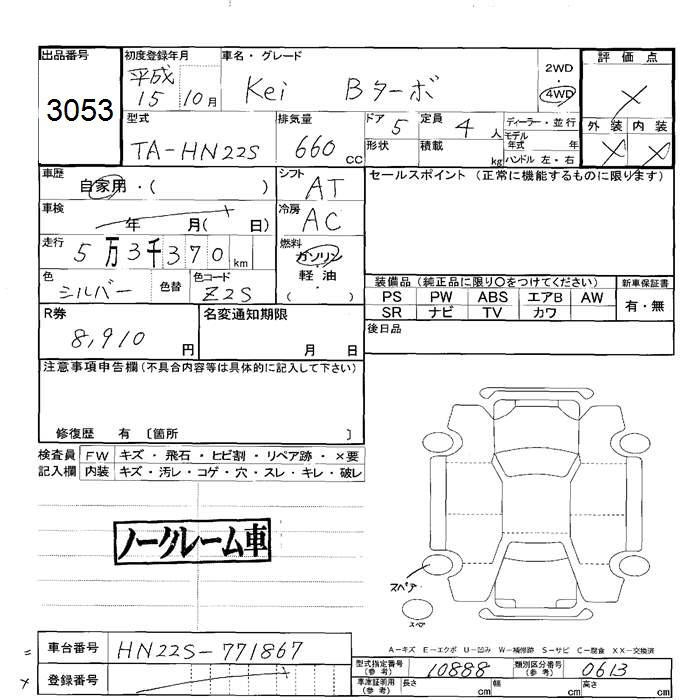 出品番号
3053
初度登録年月
平成
15 10月
車名・グレード
Kei Bターボ
2WD
・
4WD
評価点
×
外装 内装
× ×
型式
TA-HN22S
排気量
660 cc
ドア 5
形状
定員 4 人
積載 kg
ディーラー・並行
モデル年式 年
ハンドル 左・右
車歴
自家用・( )
シフト
AT
セールスポイント (正常に機能するものに限ります)
車検
年 月( 日)
冷房
AC
走行
5万3千370km
燃料
ガソリン
軽油
( )
色
シルバー
色替
色コード
Z2S
装備品 (純正品に限り○をつけてください)
新車保証書
PS PW ABS エアB AW
SR ナビ TV カワ
有・無
R券
8,910 円
名変通知期限
月 日
後日品
注意事項申告欄(不具合内容等は具体的に記入して下さい)
修復歴 有 〔箇所 〕
検査員 FW キズ・飛石・ヒビ割・リペア跡・×要
記入欄 内装 キズ・汚レ・コゲ・穴・スレ・キレ・破レ
ノークレーム車
スペア
スペア
A-キズ E-エクボ U-凹み W-補修跡 S-サビ C-腐食 XX-交換済
= 車台番号 HN22S-771867
× 登録番号
型式指定番号(参考) 10888 類別区分番号(参考) 0613
車庫証明用(参考) 長さ cm 幅 cm 高さ cm